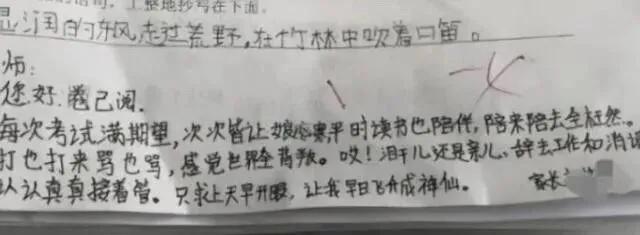 地抄写在下面。
湿润的东风走过荒野,在竹林中吹着口笛。
师:
您好.卷已阅.
每次考试满期望,次次皆让娘心寒.平时读书也陪伴,陪来陪去全枉然.
打也打来骂也骂,感觉世界全背叛。哎!泪干儿还是亲儿,辞去工作和消
认认真真接着管。只求上天早开眼,让我早日飞升成神仙。 家长